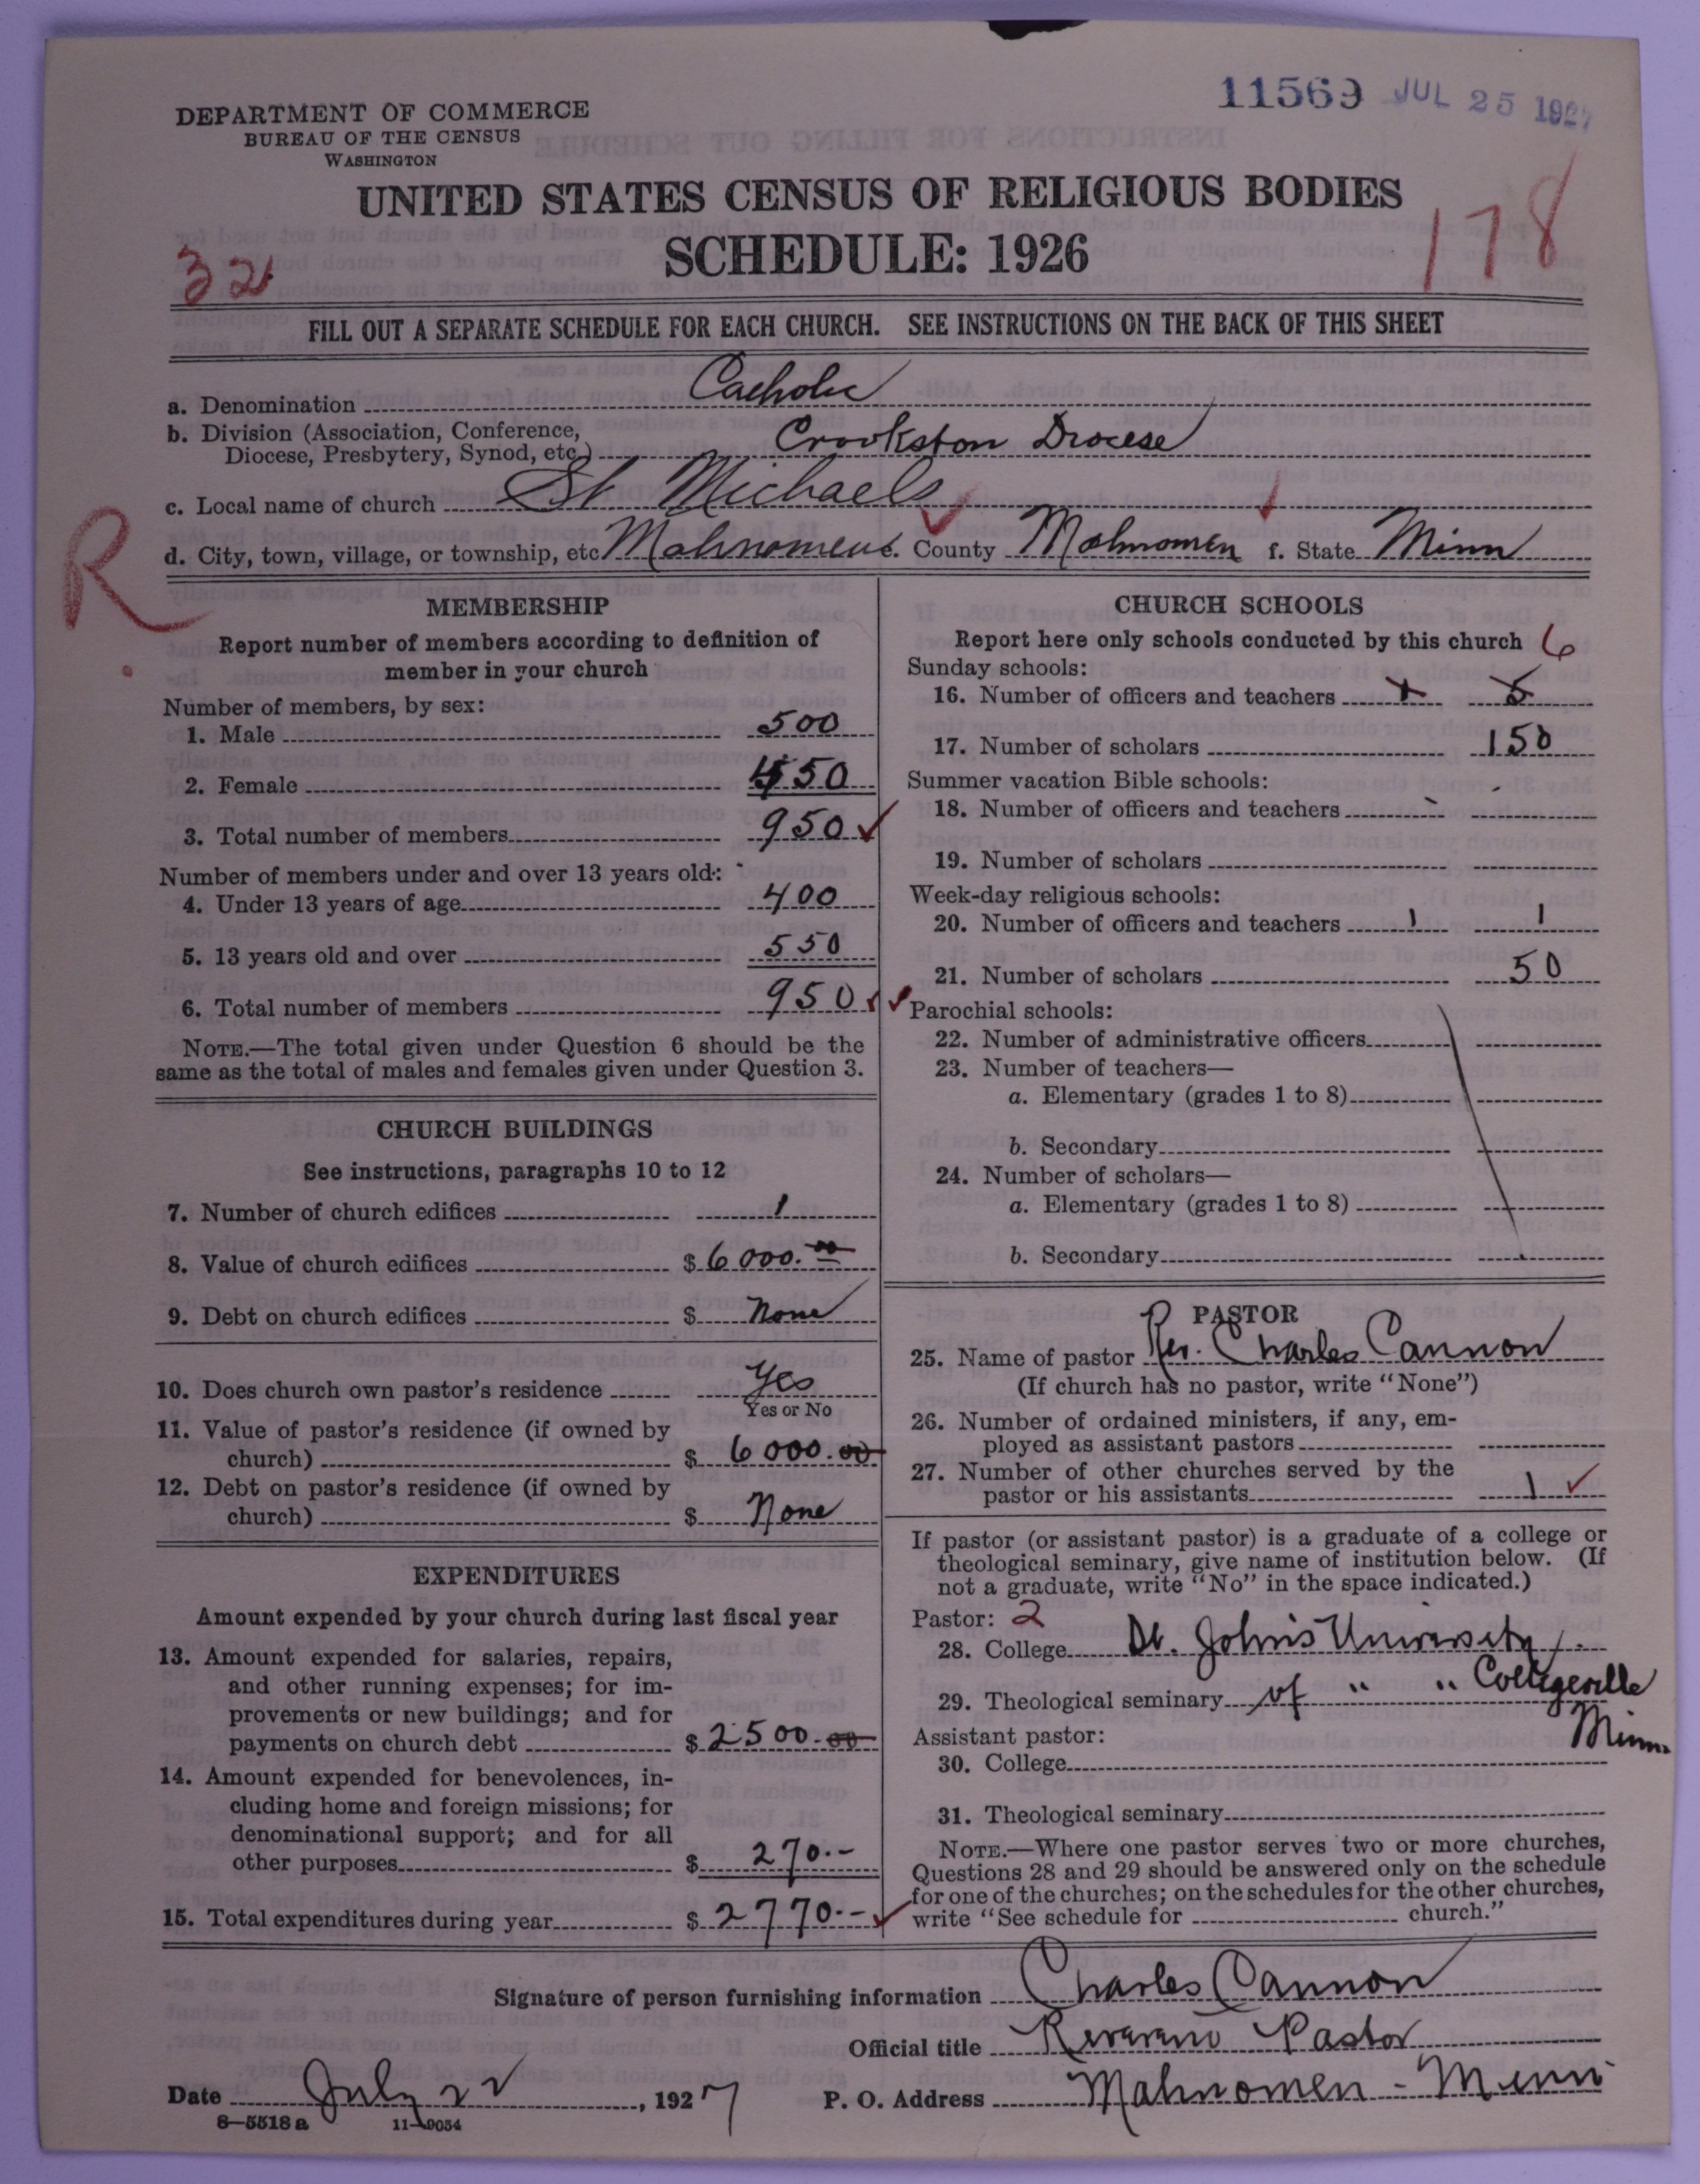 11569 JUL 25 1927
DEPARTMENT OF COMMERCE
BUREAU OF THE CENSUS
WASHINGTON
UNITED STATES CENSUS OF RELIGIOUS BODIES
SCHEDULE: 1926
32
178
FILL OUT A SEPARATE SCHEDULE FOR EACH CHURCH. SEE INSTRUCTIONS ON THE BACK OF THIS SHEET
a. Denomination Catholic
b. Division (Association, Conference,
Diocese, Presbytery, Synod, etc.) Crookston Diocese
c. Local name of church St Michaels
R
d. City, town, village, or township, etc Mahnomen e. County Mahnomen f. State Minn
MEMBERSHIP
Report number of members according to definition of
member in your church
Number of members, by sex:
1. Male 500
2. Female 450
3. Total number of members 950
Number of members under and over 13 years old:
4. Under 13 years of age 400
5. 13 years old and over 550
6. Total number of members 950
NOTE.—The total given under Question 6 should be the
same as the total of males and females given under Question 3.
CHURCH BUILDINGS
See instructions, paragraphs 10 to 12
7. Number of church edifices 1
8. Value of church edifices $ 6000.00
9. Debt on church edifices $ None
10. Does church own pastor's residence Yes
Yes or No
11. Value of pastor's residence (if owned by
church) $ 6000.00
12. Debt on pastor's residence (if owned by
church) $ None
EXPENDITURES
Amount expended by your church during last fiscal year
13. Amount expended for salaries, repairs,
and other running expenses; for im-
provements or new buildings; and for
payments on church debt $ 2500.00
14. Amount expended for benevolences, in-
cluding home and foreign missions; for
denominational support; and for all
other purposes $ 270.-
15. Total expenditures during year $ 2770.-
CHURCH SCHOOLS
Report here only schools conducted by this church 6
Sunday schools:
16. Number of officers and teachers 1 5
17. Number of scholars 150
Summer vacation Bible schools:
18. Number of officers and teachers
19. Number of scholars
Week-day religious schools:
20. Number of officers and teachers 1 1
21. Number of scholars 50
Parochial schools:
22. Number of administrative officers
23. Number of teachers—
a. Elementary (grades 1 to 8)
b. Secondary
24. Number of scholars—
a. Elementary (grades 1 to 8)
b. Secondary
PASTOR
25. Name of pastor Rev. Charles Cannon
(If church has no pastor, write "None")
26. Number of ordained ministers, if any, em-
ployed as assistant pastors
27. Number of other churches served by the
pastor or his assistants 1
If pastor (or assistant pastor) is a graduate of a college or
theological seminary, give name of institution below. (If
not a graduate, write "No" in the space indicated.)
Pastor: 2
28. College St. John's University
29. Theological seminary of " " Collegeville
Minn.
Assistant pastor:
30. College
31. Theological seminary
NOTE.—Where one pastor serves two or more churches,
Questions 28 and 29 should be answered only on the schedule
for one of the churches; on the schedules for the other churches,
write "See schedule for church."
Signature of person furnishing information Charles Cannon
Official title Reverend Pastor
Date July 22, 1927 P. O. Address Mahnomen - Minn
8—5518 a 11—9054